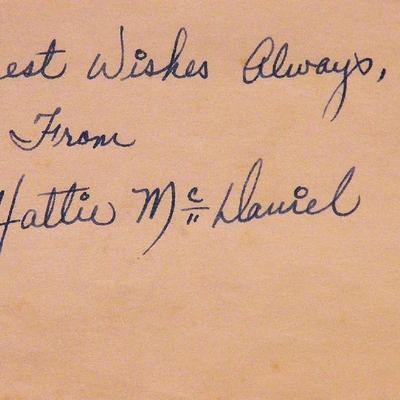 est Wishes Always,
From
Hattie McDaniel